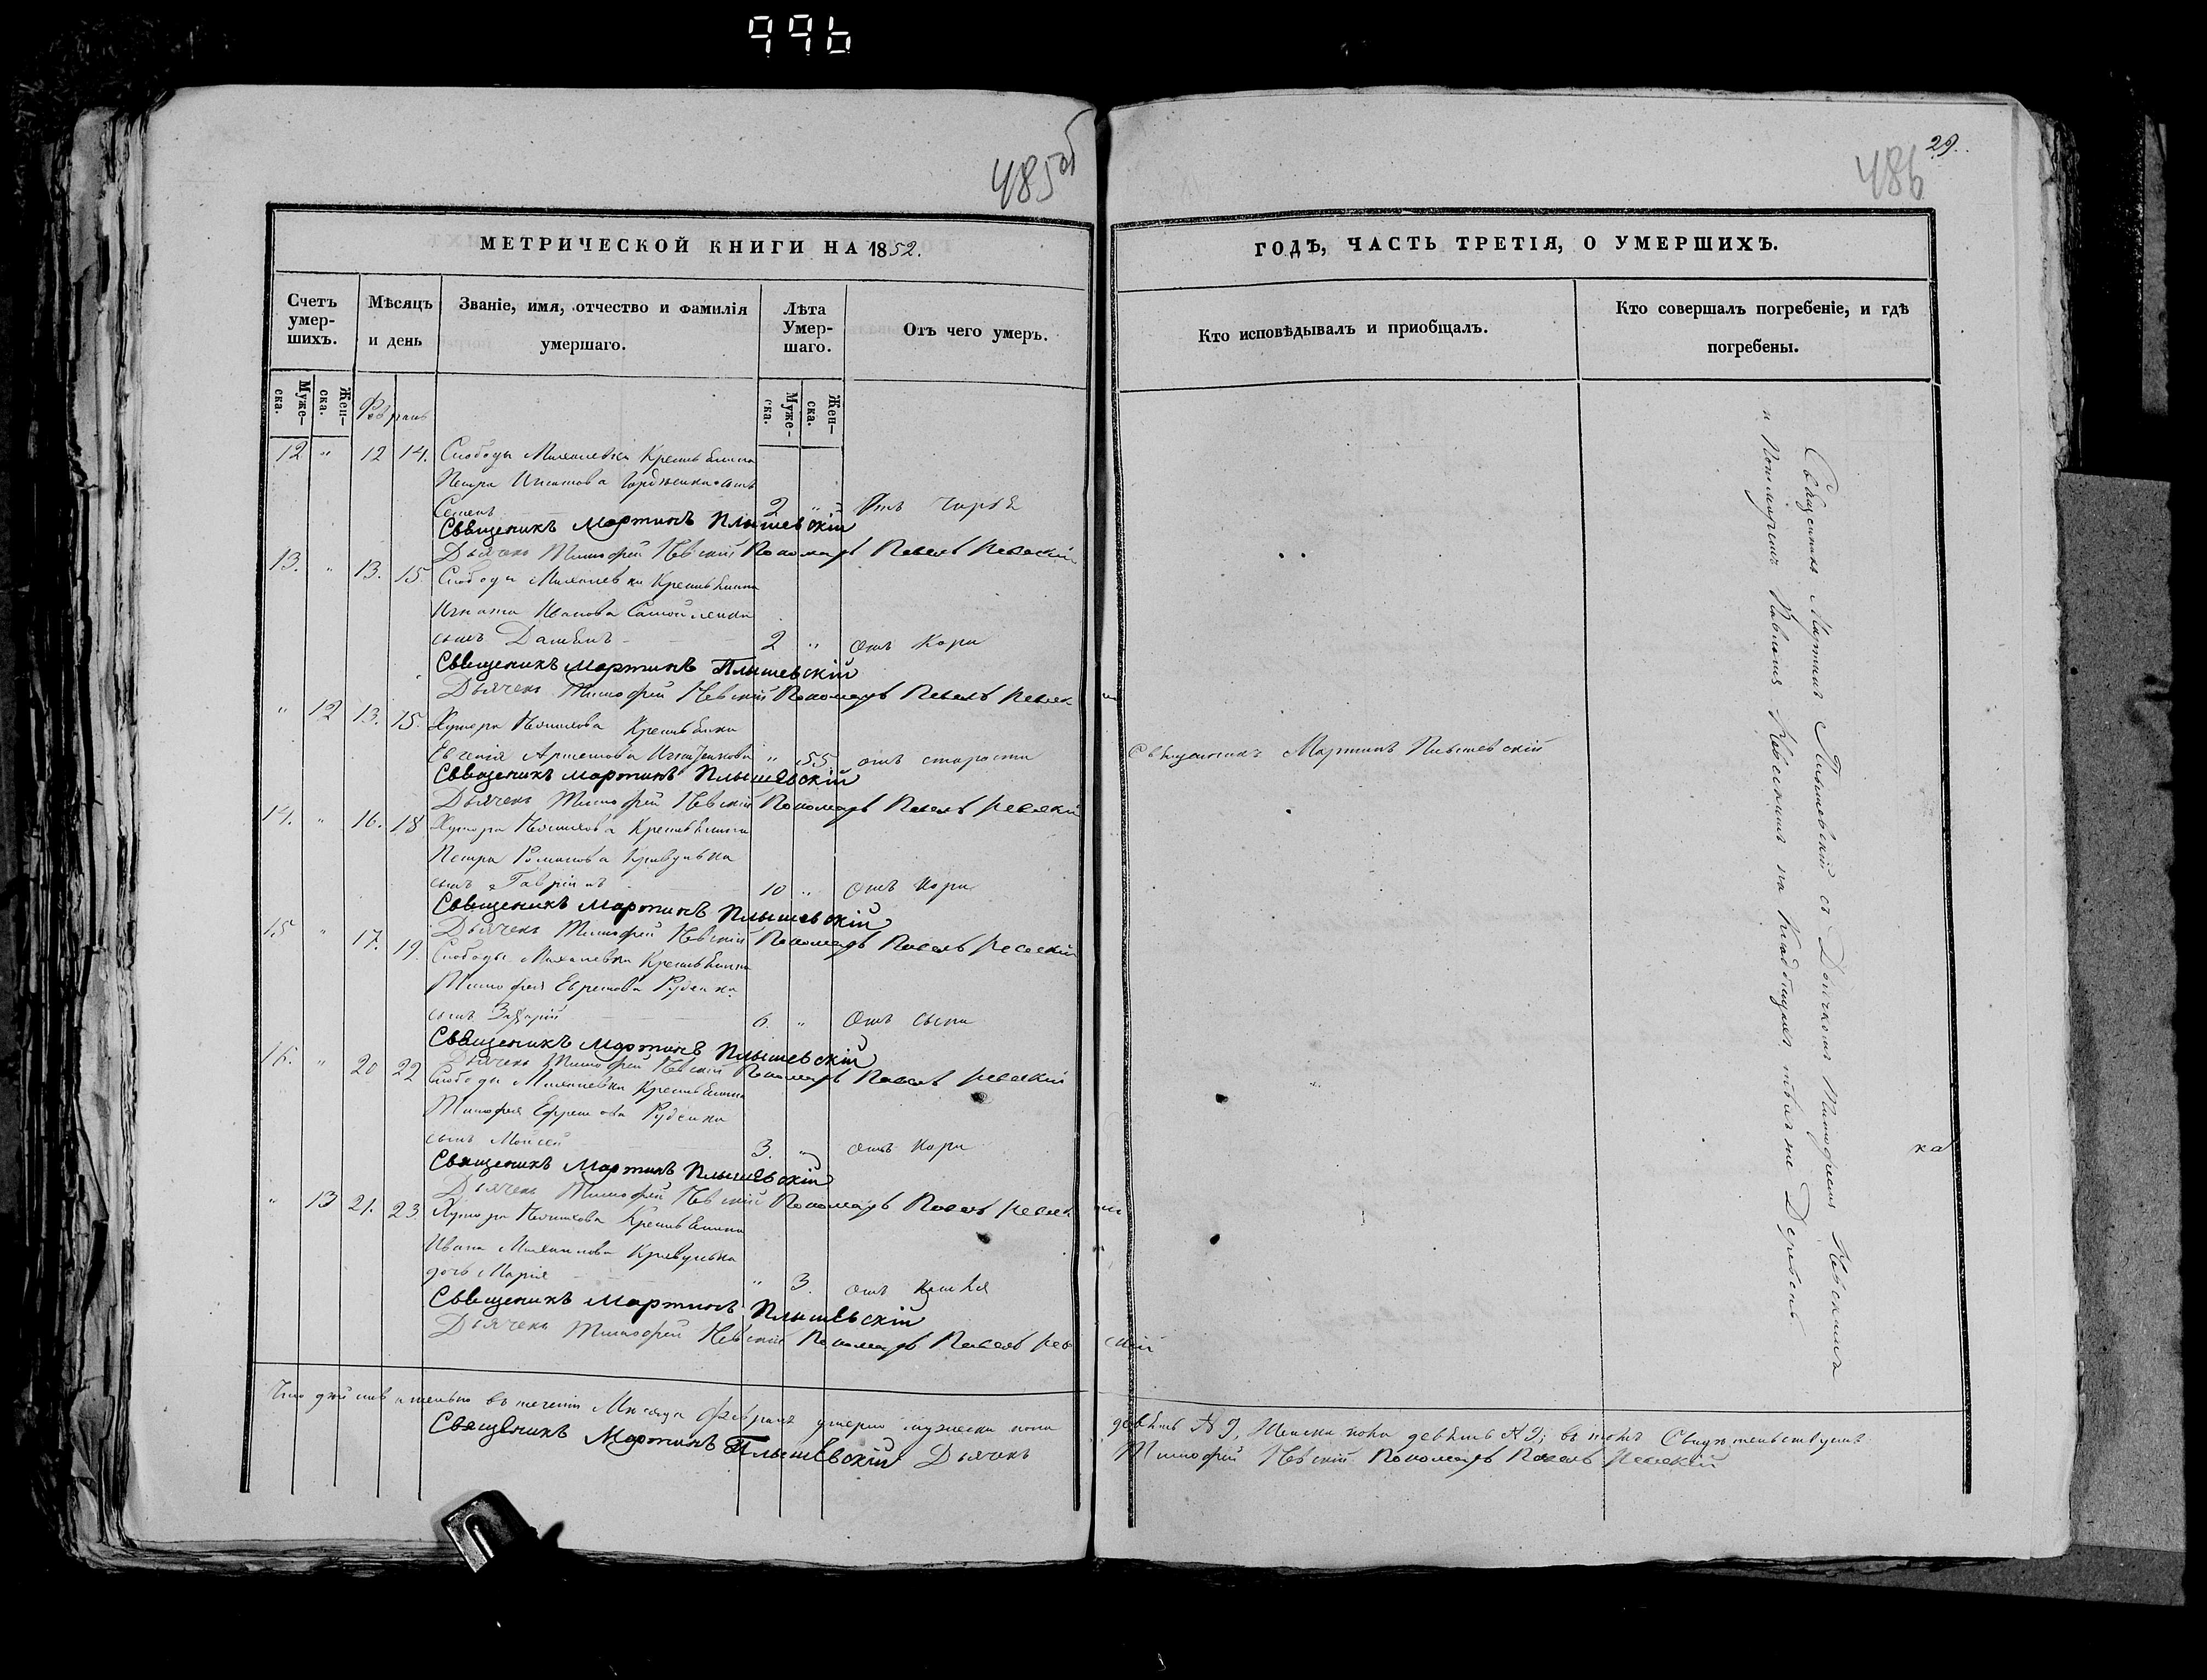 996
485об
МЕТРИЧЕСКОЙ КНИГИ НА 1852.
Счетъ умер-шихъ.
Мѣсяцъ и день
Званіе, имя, отчество и фамилія умершаго.
Лѣта Умер-шаго.
Отъ чего умеръ.
Муже-ска.
Жен-ска.
Муже-ска.
Жен-ска.
12 " 12 14. Слободы Михалевки Крестьянина
Петра Игнатова
Семенъ 2 "
Священикъ Мартинъ Плышевскій
Дьячекъ Тимофей Невскій Пономарь Павелъ Невскій
13. " 13. 15. Слободы Михалевки Крестьянина
Игната Иванова Самойленка
сынъ 2 " отъ Кори
Священикъ Мартинъ Плышевскій
Дьячекъ Тимофей Невскій Пономарь Павелъ Невскій
" 12 13. 15. Хутора Крестьянка
Евгенія Артемова " 55. отъ старости
Священикъ Мартинъ Плышевскій
Дьячекъ Тимофей Невскій Пономарь Павелъ Невскій
14. " 16. 18. Хутора Крестьянина
Петра Романова Кривулька
сынъ Гавріилъ 10 " отъ Кори
Священикъ Мартинъ Плышевскій
Дьячекъ Тимофей Невскій Пономарь Павелъ Невскій
15 " 17. 19. Слободы Михалевки Крестьянина
Тимофея Ефремова Руденка
сынъ Захарій 6. " отъ сыпи
Священикъ Мартинъ Плышевскій
Дьячекъ Тимофей Невскій Пономарь Павелъ Невскій
16. " 20 22 Слободы Михалевки Крестьянина
Тимофея Ефремова Руденка
сынъ Моисей 3. " отъ Кори
Священикъ Мартинъ Плышевскій
Дьячекъ Тимофей Невскій Пономарь Павелъ Невскій
" 13 21. 23. Хутора Крестьянина
Ивана Михаилова Кривулька
дочь Марія " 3. отъ Кашля
Священикъ Мартинъ Плышевскій
Дьячекъ Тимофей Невскій Пономарь Павелъ Невскій
Что действительно въ теченіи Месяца Февраля умерло мужеска пола
Священикъ Мартинъ Плышевскій Дьячекъ
486
29.
ГОДЪ, ЧАСТЬ ТРЕТІЯ, О УМЕРШИХЪ.
Кто исповѣдывалъ и пріобщалъ.
Кто совершалъ погребеніе, и гдѣ погребены.
Священникъ Мартинъ Плышевскій
Священникъ Мартинъ Плышевскій съ Дьячкомъ Тимофеемъ Невскимъ
и Пономаремъ Павломъ Невскимъ на Кладбищахъ
девять, Женска пола девять; въ томъ Свидетельствуемъ
Тимофей Невскій Пономарь Павелъ Невскій